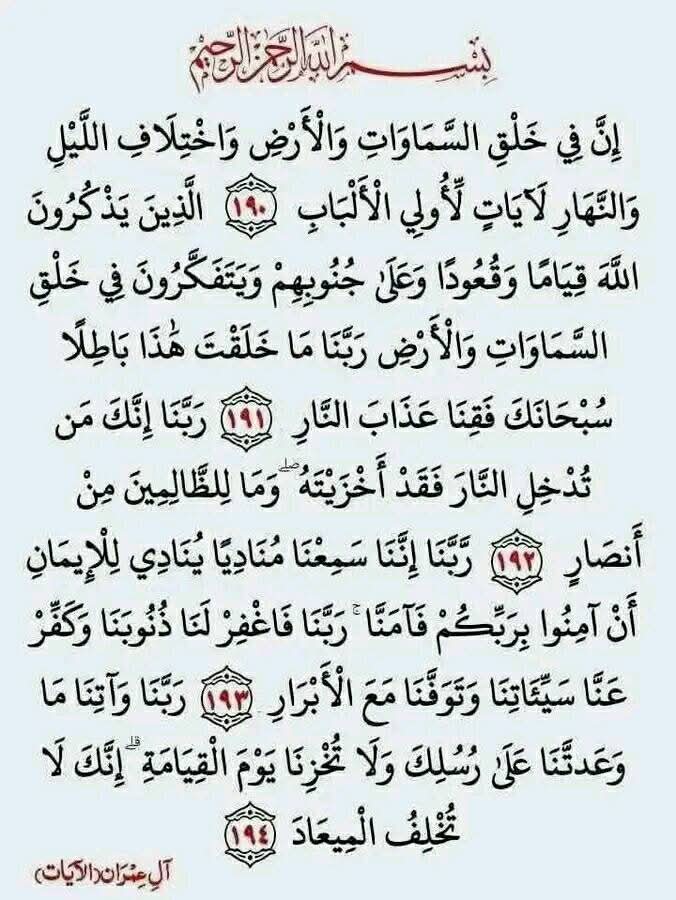 بِسْمِ اللَّهِ الرَّحْمَٰنِ الرَّحِيمِ
إِنَّ فِي خَلْقِ السَّمَاوَاتِ وَالْأَرْضِ وَاخْتِلَافِ اللَّيْلِ
وَالنَّهَارِ لَآيَاتٍ لِّأُولِي الْأَلْبَابِ ١٩٠ الَّذِينَ يَذْكُرُونَ
اللَّهَ قِيَامًا وَقُعُودًا وَعَلَىٰ جُنُوبِهِمْ وَيَتَفَكَّرُونَ فِي خَلْقِ
السَّمَاوَاتِ وَالْأَرْضِ رَبَّنَا مَا خَلَقْتَ هَٰذَا بَاطِلًا
سُبْحَانَكَ فَقِنَا عَذَابَ النَّارِ ١٩١ رَبَّنَا إِنَّكَ مَن
تُدْخِلِ النَّارَ فَقَدْ أَخْزَيْتَهُ ۖ وَمَا لِلظَّالِمِينَ مِنْ
أَنصَارٍ ١٩٢ رَّبَّنَا إِنَّنَا سَمِعْنَا مُنَادِيًا يُنَادِي لِلْإِيمَانِ
أَنْ آمِنُوا بِرَبِّكُمْ فَآمَنَّا ۚ رَبَّنَا فَاغْفِرْ لَنَا ذُنُوبَنَا وَكَفِّرْ
عَنَّا سَيِّئَاتِنَا وَتَوَفَّنَا مَعَ الْأَبْرَارِ ١٩٣ رَبَّنَا وَآتِنَا مَا
وَعَدتَّنَا عَلَىٰ رُسُلِكَ وَلَا تُخْزِنَا يَوْمَ الْقِيَامَةِ ۗ إِنَّكَ لَا
تُخْلِفُ الْمِيعَادَ ١٩٤
آلِ عِمْرَان (الآيات)